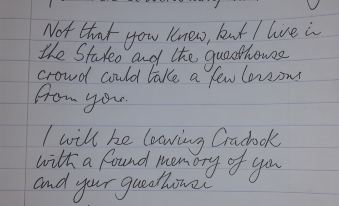 Not that you knew, but I live in
the States and the guesthouse
crowd could take a few lessons
from you.
I will be leaving Cradock
with a found memory of you
and your guesthouse